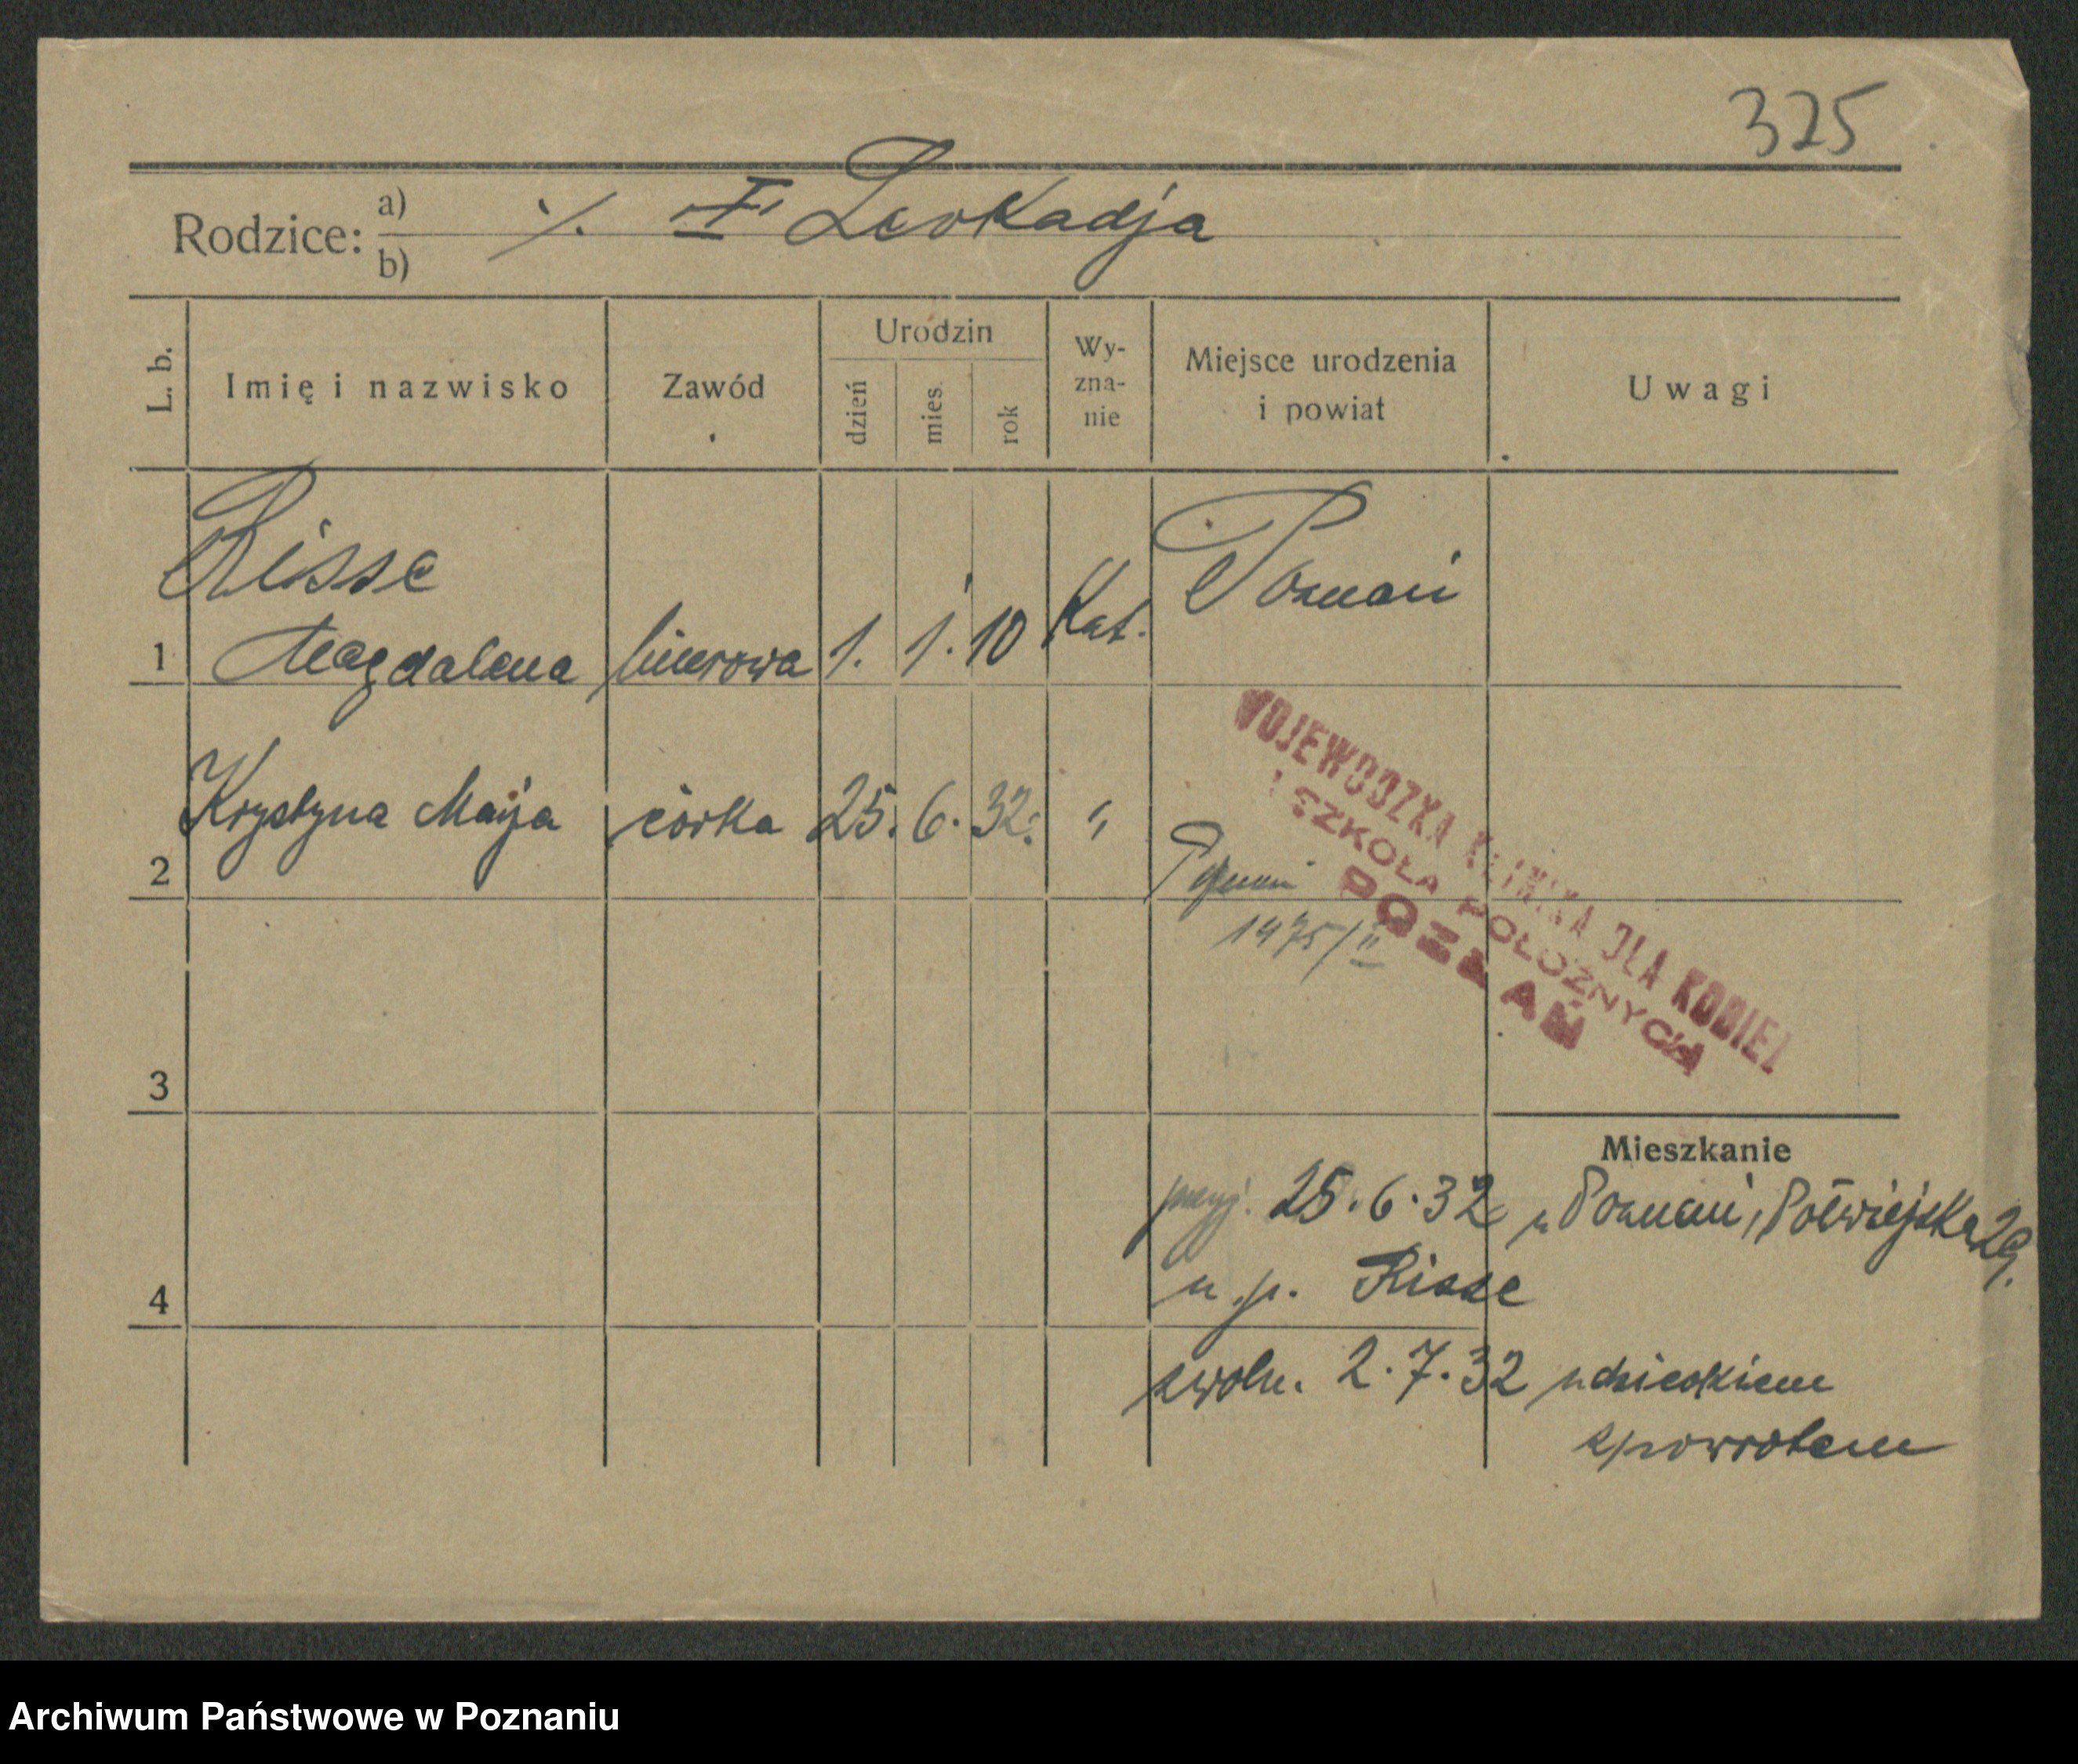 325
Rodzice: a) ./. I Leokadja
b)
L. b.
Imię i nazwisko
Zawód
Urodzin
dzień
mies.
rok
Wy-
zna-
nie
Miejsce urodzenia
i powiat
Uwagi
Risse
1 Magdalena biurowa 1. 1. 10 Kat. Poznań
2 Krystyna Marja córka 25. 6. 32. " Poznań
1475/II
WOJEWÓDZKA KLINIKA DLA KOBIET
I SZKOŁA POŁOŻNYCH
POZNAŃ
3
Mieszkanie
przyj. 25.6.32 z Poznani, Półwiejska 29.
u.p. Risse
4
zwoln. 2.7.32 z dzieckiem
zpowrotem
Archiwum Państwowe w Poznaniu